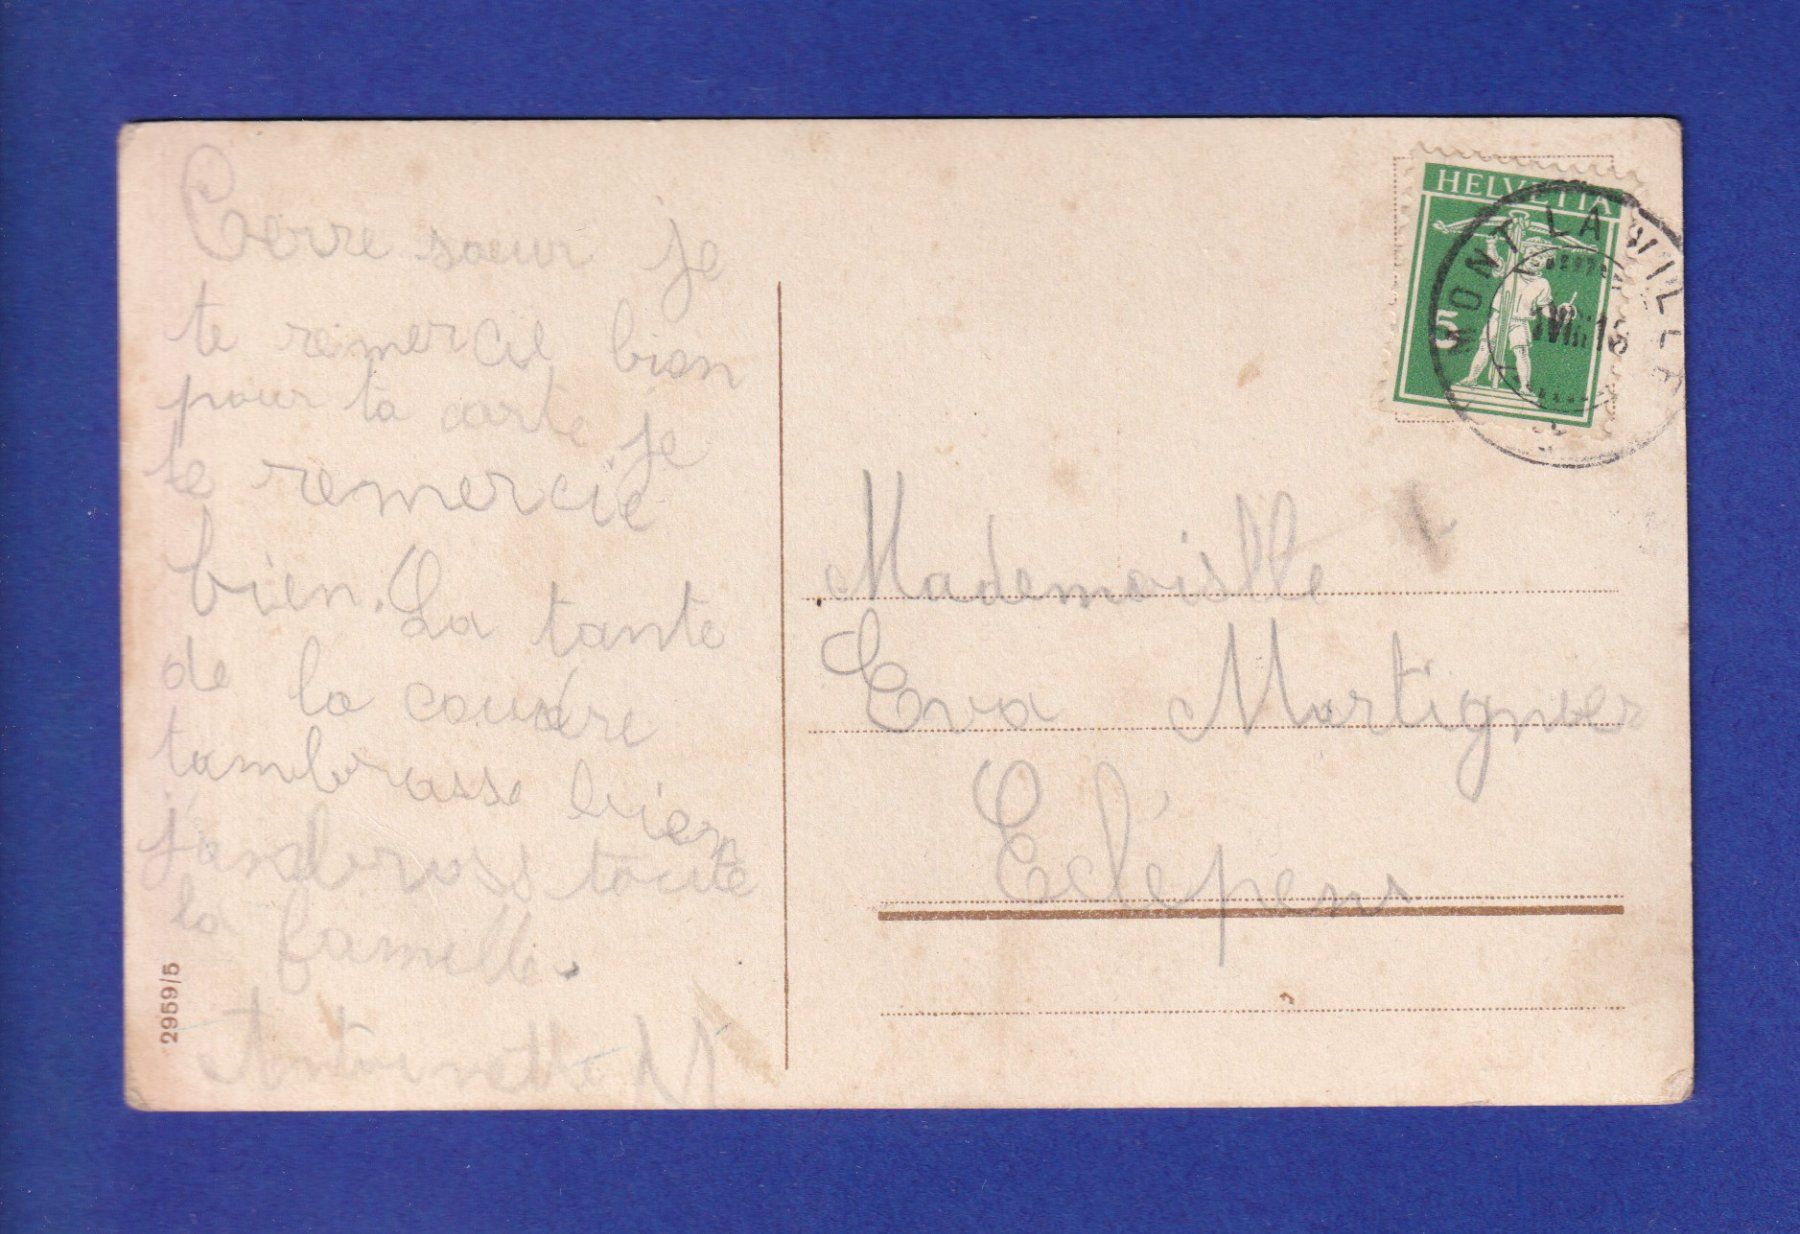 Cerre soeur je
te remercie bien
pour ta carte je
te remercie
bien. La tante
de la coudre
tambrasse bien
j'andbrass toute
la famille.
Antoinette M
2959/5
HELVETIA
5
MONT LA VILLE
Mademoislle
Eva Martignier
Eclépens